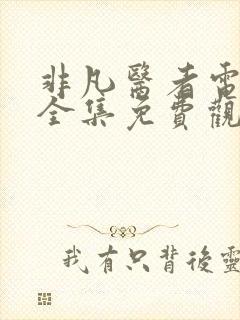 非凡醫者電
全集免費觀
我有只背後靈